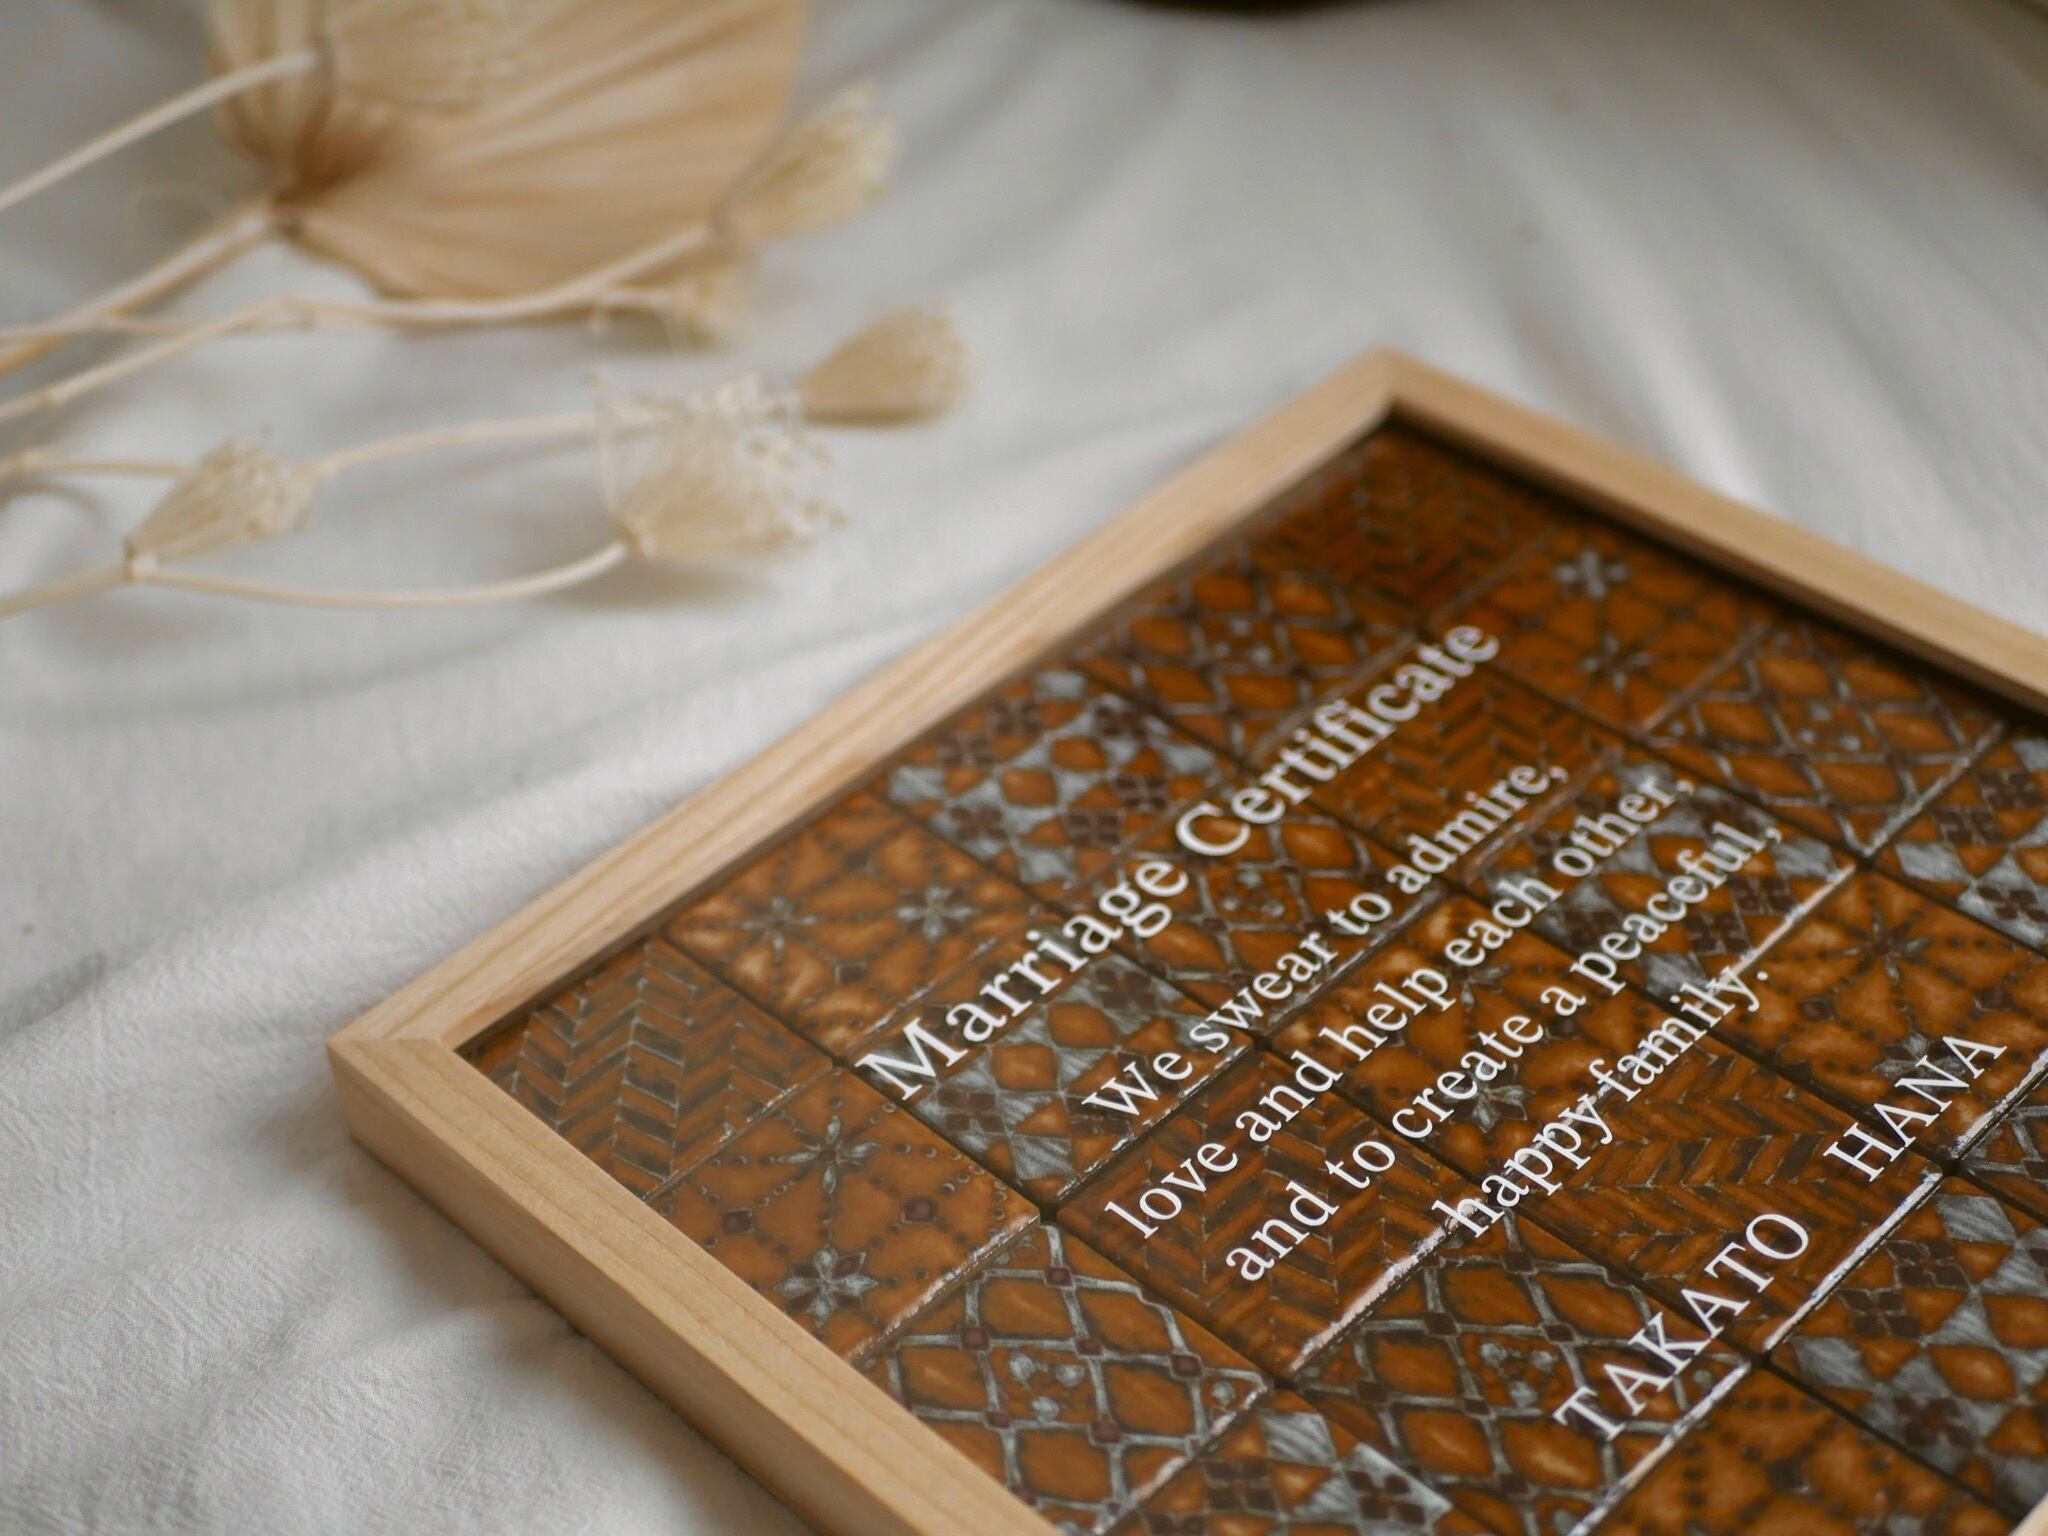 Marriage Certificate
We swear to admire,
love and help each other,
and to create a peaceful,
happy family.
TAKATO HANA